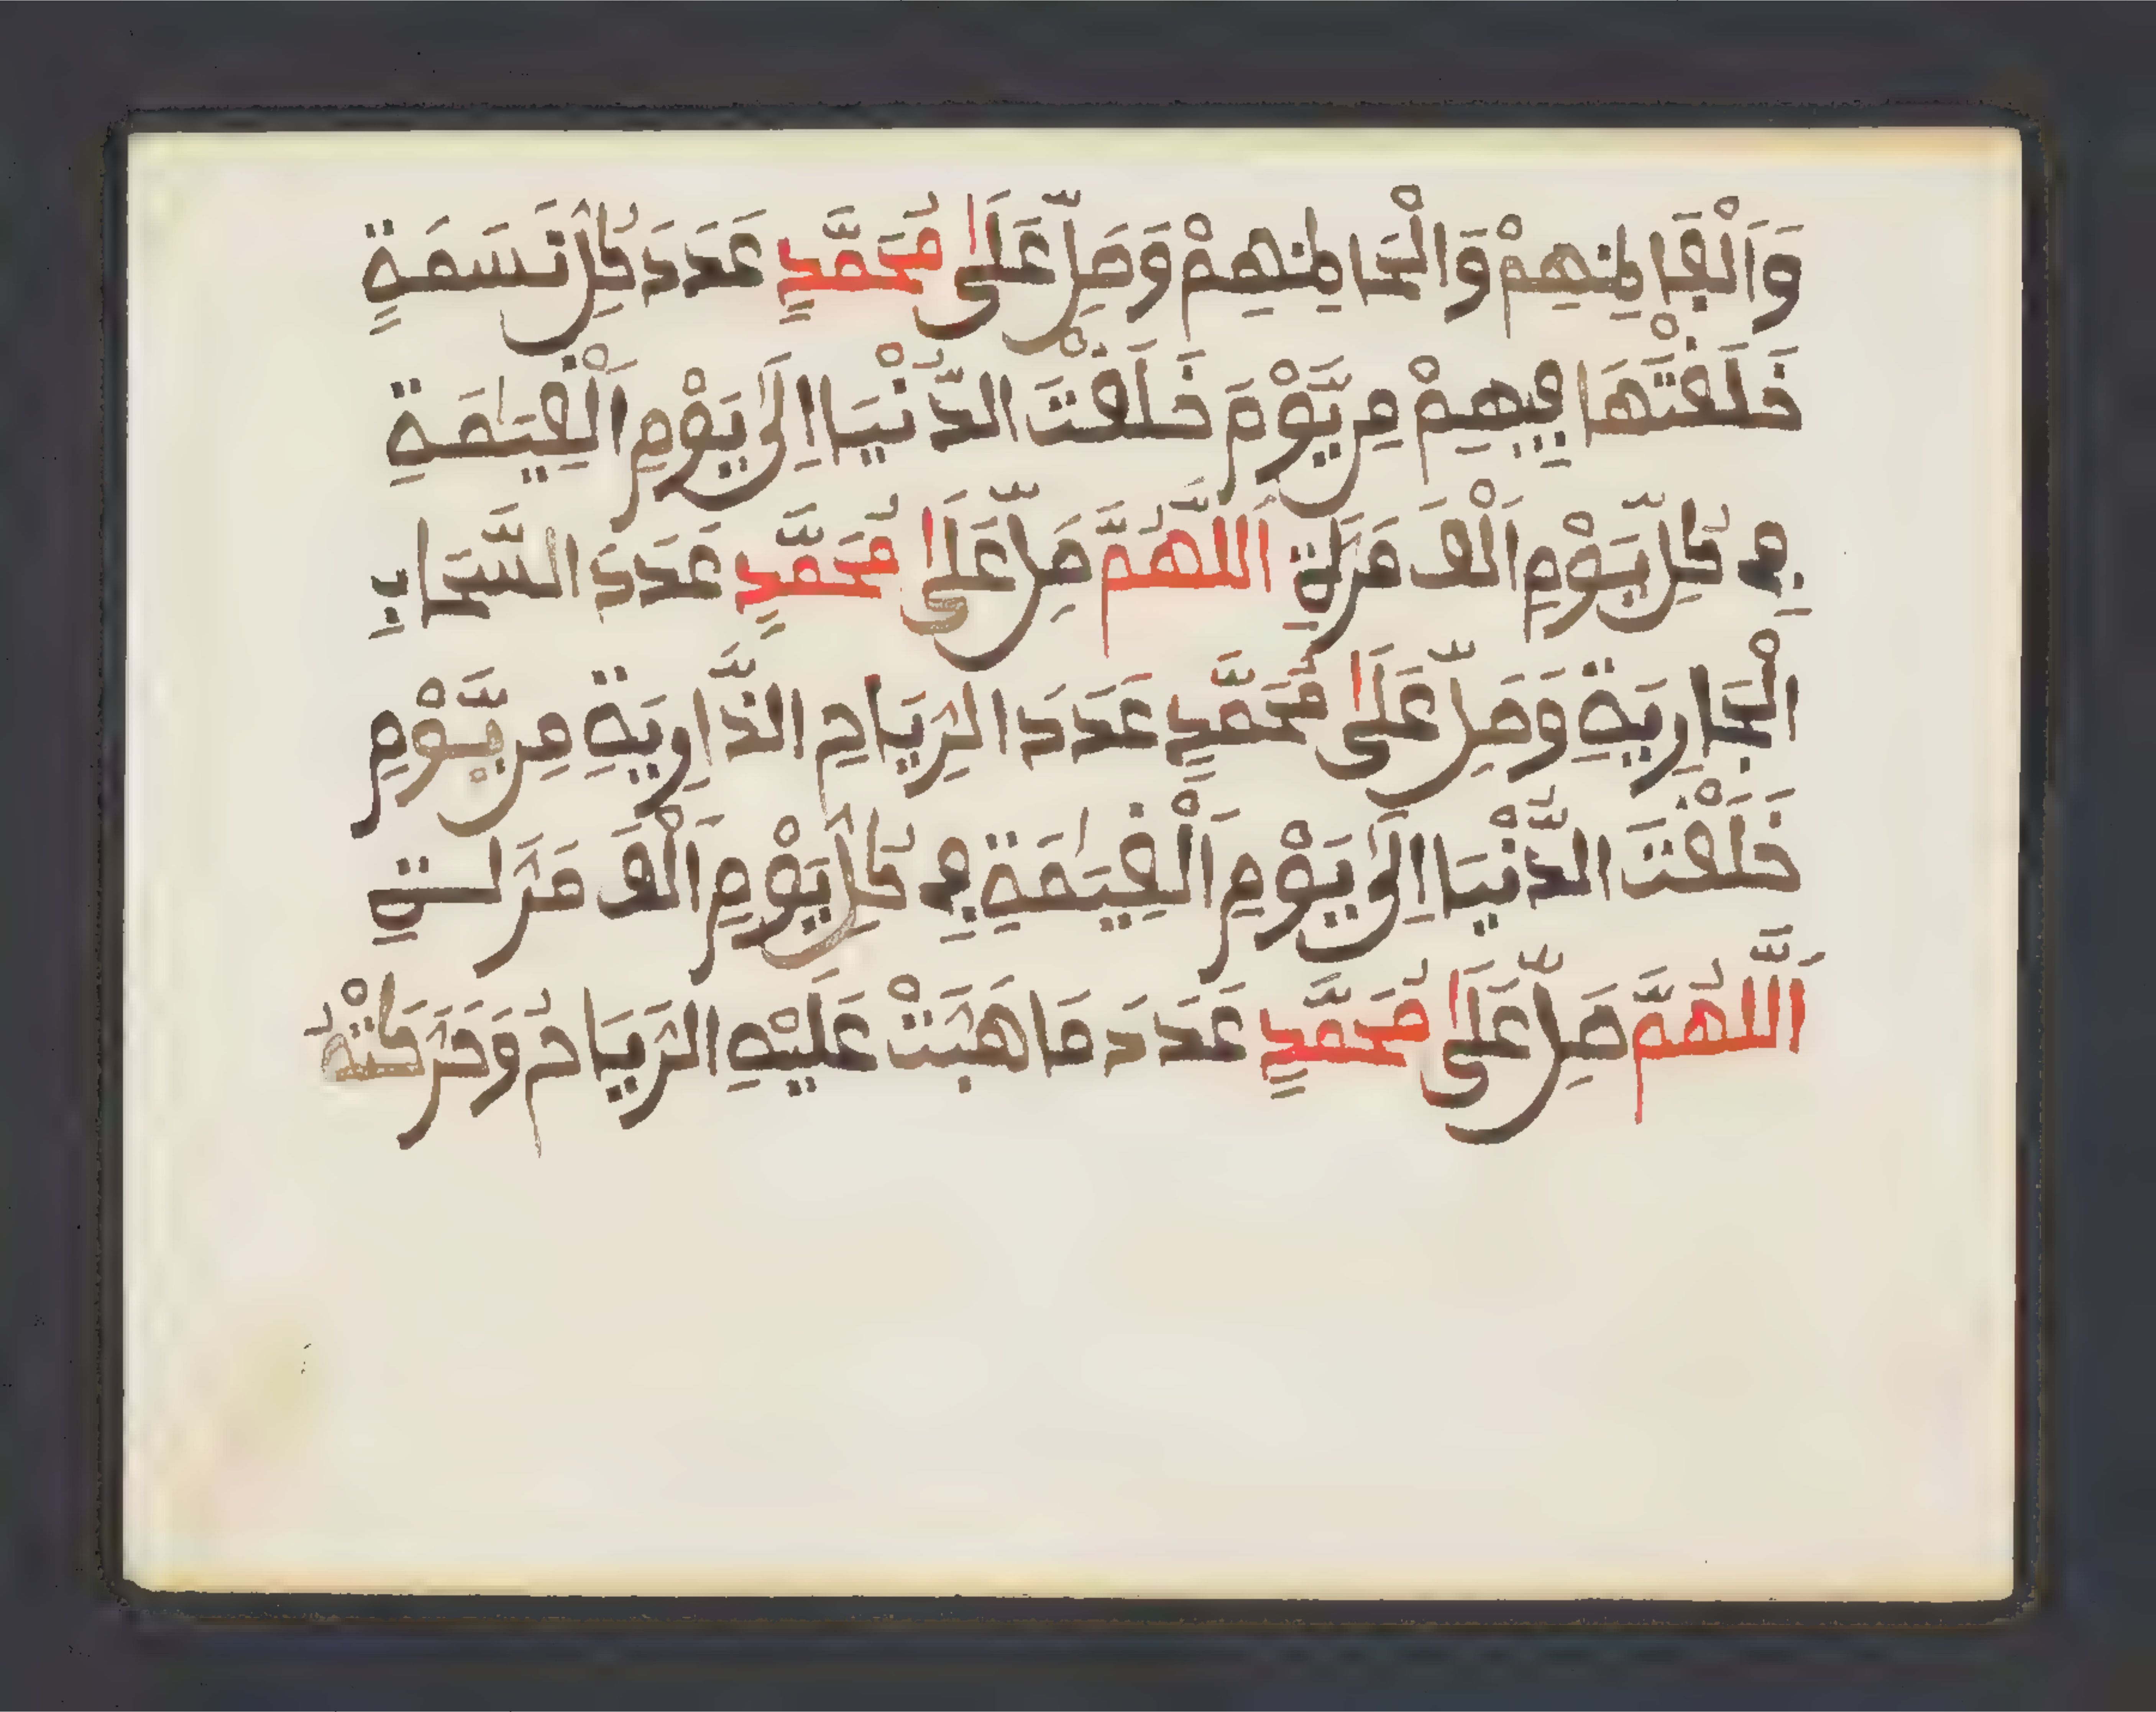 وَصَلِّ عَلَى مُحَمَّدٍ عَدَدَ كُلِّ نَسَمَةٍ
خَلَقْتَهَا فِيهِمْ مِن يَّوْمَ خَلَقْتَ الدُّنْيَا اِلَى يَوْمِ اَلْقِيَٰمَةِ
فِي كُلِّ يَوْمٍ اَلْفَ مَرَّةٍ اَللَّهُمَّ صَلِّ عَلَى مُحَمَّدٍ عَدَدَ السَّحَابِ
الْجَارِيَةِ وَصَلِّ عَلَى مُحَمَّدٍ عَدَدَ الرِّيَاحِ الذَّارِيَةِ مِن يَّوْمِ
خَلَقْتَ الدُّنْيَا اِلَى يَوْمِ اَلْقِيَٰمَةِ فِي كُلِّ يَوْمٍ اَلْفَ مَرَّةٍ
اَللَّهُمَّ صَلِّ عَلَى مُحَمَّدٍ عَدَدَ مَا هَبَّتْ عَلَيْهِ الرِّيَاحُ وَحَرَّكَتْهُ